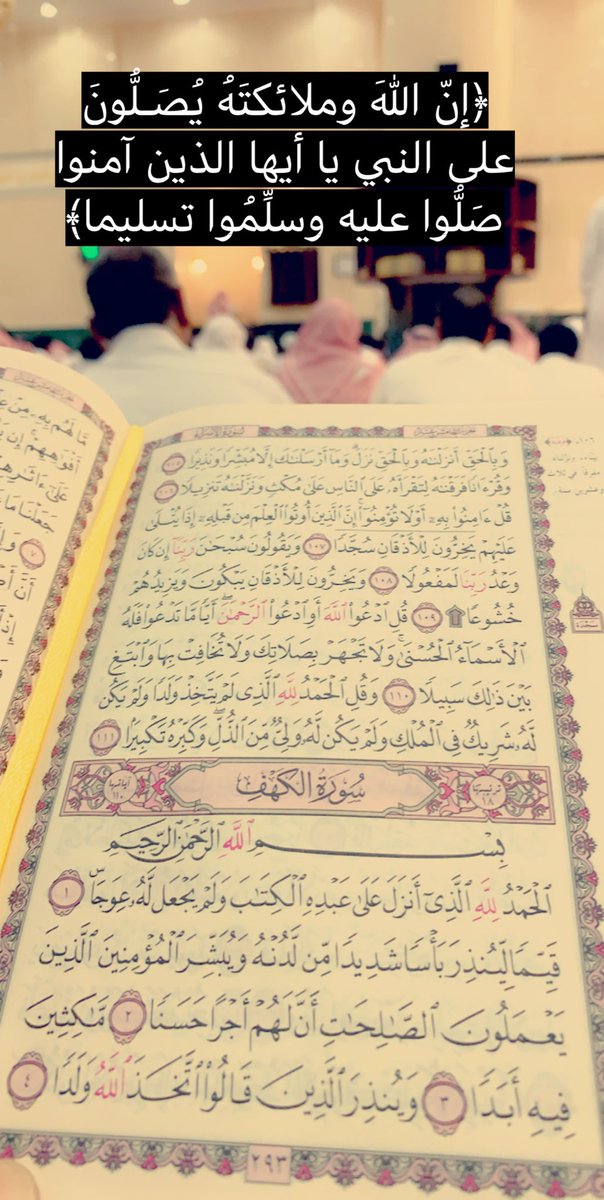 ﴿إنّ اللهَ وملائكتَهُ يُصَلُّونَ
على النبي يا أيها الذين آمنوا
صَلُّوا عليه وسلِّمُوا تسليما﴾
سُورَةُ الإِسْرَاءِ
وَبِٱلْحَقِّ أَنزَلْنَٰهُ وَبِٱلْحَقِّ نَزَلَ وَمَآ أَرْسَلْنَٰكَ إِلَّا مُبَشِّرًا وَنَذِيرًا ١٠٥
وَقُرْءَانًا فَرَقْنَٰهُ لِتَقْرَأَهُۥ عَلَى ٱلنَّاسِ عَلَىٰ مُكْثٍ وَنَزَّلْنَٰهُ تَنزِيلًا ١٠٦
قُلْ ءَامِنُوا۟ بِهِۦٓ أَوْ لَا تُؤْمِنُوٓا۟ إِنَّ ٱلَّذِينَ أُوتُوا۟ ٱلْعِلْمَ مِن قَبْلِهِۦٓ إِذَا يُتْلَىٰ
عَلَيْهِمْ يَخِرُّونَ لِلْأَذْقَانِ سُجَّدًا ١٠٧ وَيَقُولُونَ سُبْحَٰنَ رَبِّنَآ إِن كَانَ
وَعْدُ رَبِّنَا لَمَفْعُولًا ١٠٨ وَيَخِرُّونَ لِلْأَذْقَانِ يَبْكُونَ وَيَزِيدُهُمْ
خُشُوعًا ۩ ١٠٩ قُلِ ٱدْعُوا۟ ٱللَّهَ أَوِ ٱدْعُوا۟ ٱلرَّحْمَٰنَ أَيًّا مَّا تَدْعُوا۟ فَلَهُ
ٱلْأَسْمَآءُ ٱلْحُسْنَىٰ وَلَا تَجْهَرْ بِصَلَاتِكَ وَلَا تُخَافِتْ بِهَا وَٱبْتَغِ
بَيْنَ ذَٰلِكَ سَبِيلًا ١١٠ وَقُلِ ٱلْحَمْدُ لِلَّهِ ٱلَّذِى لَمْ يَتَّخِذْ وَلَدًا وَلَمْ يَكُن
لَّهُۥ شَرِيكٌ فِى ٱلْمُلْكِ وَلَمْ يَكُن لَّهُۥ وَلِىٌّ مِّنَ ٱلذُّلِّ وَكَبِّرْهُ تَكْبِيرًۢا ١١١
ترتيبها ١٨ سُورَةُ الكَهْفِ آياتها ١١٠
بِسْمِ ٱللَّهِ ٱلرَّحْمَٰنِ ٱلرَّحِيمِ
ٱلْحَمْدُ لِلَّهِ ٱلَّذِىٓ أَنزَلَ عَلَىٰ عَبْدِهِ ٱلْكِتَٰبَ وَلَمْ يَجْعَل لَّهُۥ عِوَجَاۜ ١
قَيِّمًا لِّيُنذِرَ بَأْسًا شَدِيدًا مِّن لَّدُنْهُ وَيُبَشِّرَ ٱلْمُؤْمِنِينَ ٱلَّذِينَ
يَعْمَلُونَ ٱلصَّٰلِحَٰتِ أَنَّ لَهُمْ أَجْرًا حَسَنًا ٢ مَّٰكِثِينَ
فِيهِ أَبَدًا ٣ وَيُنذِرَ ٱلَّذِينَ قَالُوا۟ ٱتَّخَذَ ٱللَّهُ وَلَدًا ٤
٢٩٣
سجدة